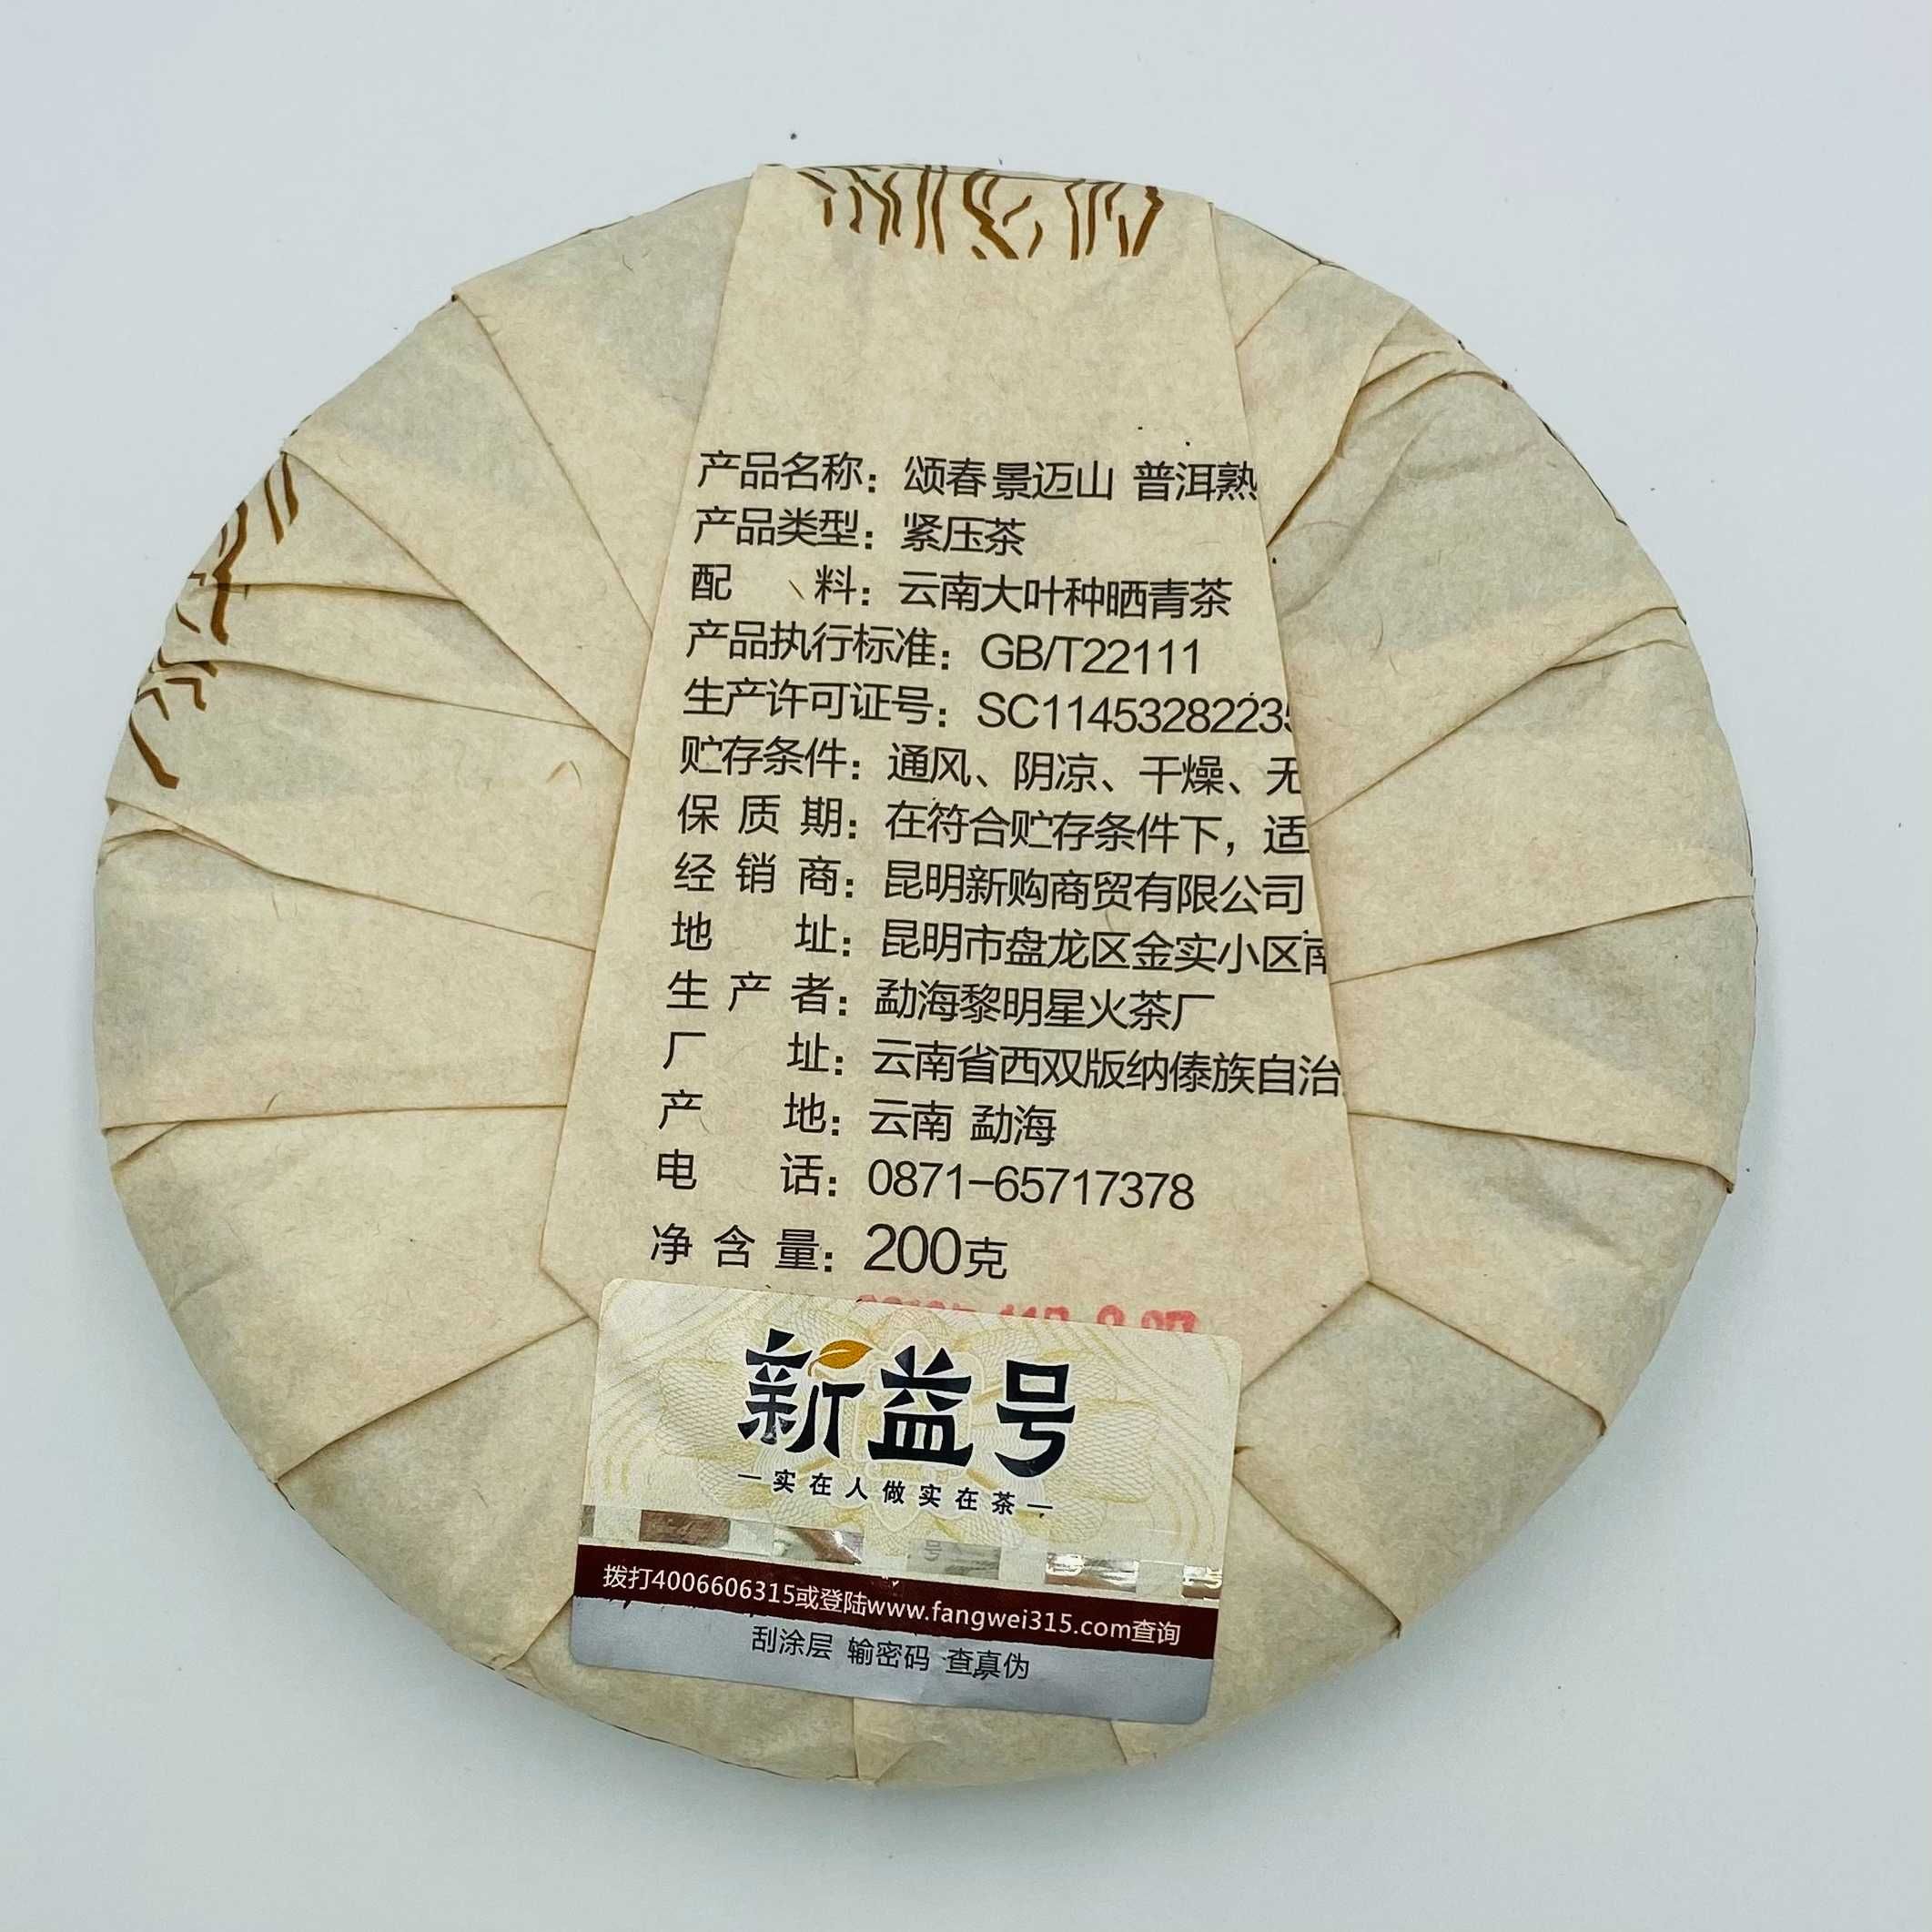 产品名称：颂春景迈山 普洱熟
产品类型：紧压茶
配 料：云南大叶种晒青茶
产品执行标准：GB/T22111
生产许可证号：SC11453282235
贮存条件：通风、阴凉、干燥、无
保 质 期：在符合贮存条件下，适
经 销 商：昆明新购商贸有限公司
地 址：昆明市盘龙区金实小区南
生 产 者：勐海黎明星火茶厂
厂 址：云南省西双版纳傣族自治
产 地：云南 勐海
电 话：0871-65717378
净 含 量：200克
新益号
一实在人做实在茶一
拨打4006606315或登陆www.fangwei315.com查询
刮涂层 输密码 查真伪